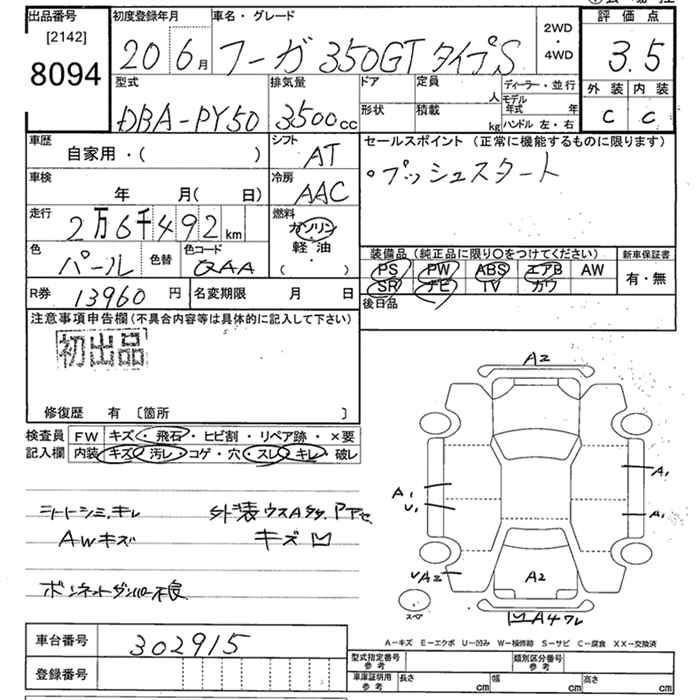 出品番号
[2142]
8094
初度登録年月
20 6月
車名・グレード
フーガ 350GT タイプS
2WD
・
4WD
評価点
3.5
外装 内装
C C
型式
DBA-PY50
排気量
3500cc
ドア
形状
定員
人
積載
kg
ディーラー・並行
モデル年式 年
ハンドル 左・右
車歴
自家用・( )
シフト
AT
車検
年 月( 日)
冷房
AAC
走行
2万6千492km
燃料
ガソリン
軽油
( )
色
パール
色替
色コード
QAA
R券
13960円
名変期限 月 日
セールスポイント (正常に機能するものに限ります)
・プッシュスタート
装備品 (純正品に限り〇をつけてください)
PS PW ABS エアB AW
SR ナビ TV カワ
新車保証書
有・無
後日品
注意事項申告欄(不具合内容等は具体的に記入して下さい)
初出品
修復歴 有 [箇所 ]
検査員
記入欄
FW キズ・飛石・ヒビ割・リペア跡・×要
内装 キズ・汚レ・コゲ・穴・スレ・キレ・破レ
シートシミ、キレ
AWキズ
外装ウスAタタ
キズ凹
ボンネットダンパー不良
A2
A1
U1
A1
A1
UA2
A2
スペア
凹A4ワレ
A-キズ E-エクボ U-凹み W-補修跡 S-サビ C-腐食 XX-交換済
車台番号
302915
登録番号
型式指定番号
参考
類別区分番号
参考
車庫証明用
参考
長さ cm
幅 cm
高さ cm